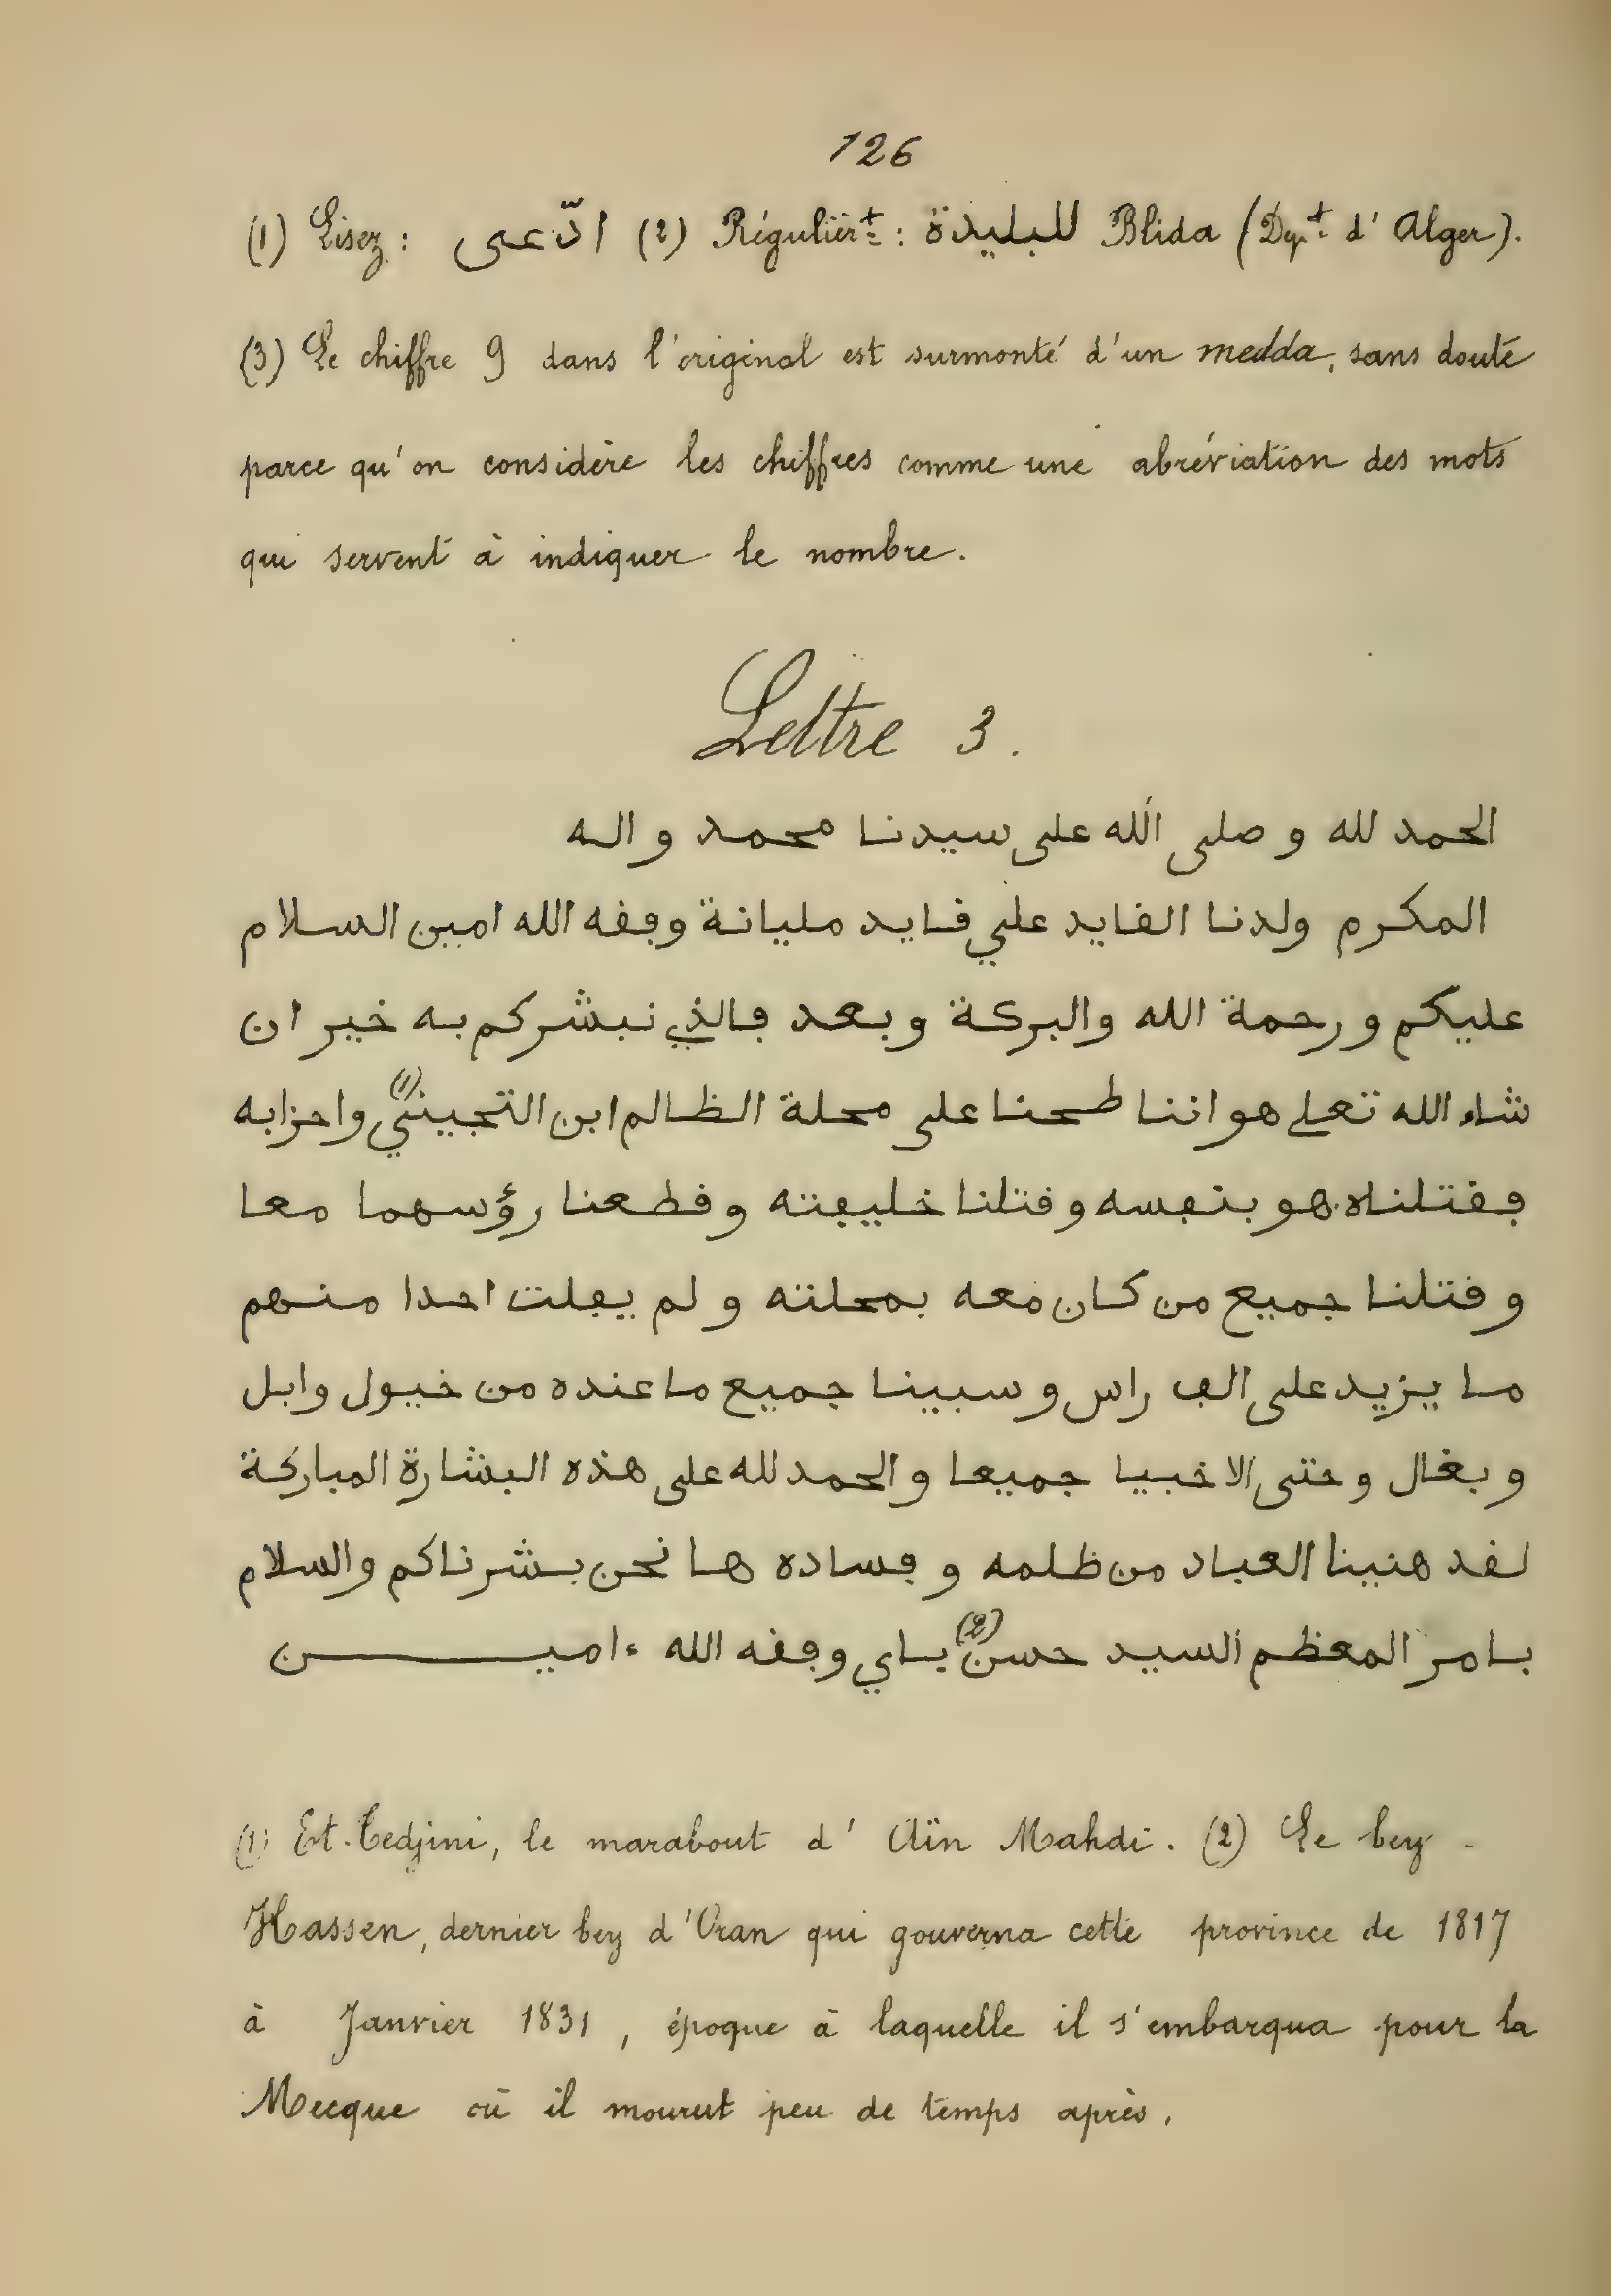 126
(1) Lisez : ادّعى (2) Régulièrt : للبليدة Blida (Dept d'Alger).
(3) Le chiffre 9 dans l'original est surmonté d'un medda, sans doute
parce qu'on considère les chiffres comme une abréviation des mots
qui servent à indiquer le nombre.
Lettre 3.
الحمد لله و صلى الله على سيدنا محمد و اله
المكرم ولدنا الفايد علي فايد مليانة وڢفه الله امين السلام
عليكم و رحمة الله والبركة و بعد ڢالذي نبشركم به خير ان
شاء الله تعلى هو اننا طحنا على محلة الظالم ابن التجيني (1) واحزابه
ڢفتلناه هو بنڢسه و فتلنا خليڢته و فطعنا رؤسهما معا
و فتلنا جميع من كان معه بمحلته و لم يڢلت احدا منهم
ما يزيد على الڢ راس و سبينا جميع ما عنده من خيول وابل
و بغال و حتى الاخبيا جميعا و الحمد لله على هذه البشارة المباركة
لفد هنينا العباد من ظلمه و ڢساده ها نحن بشرناكم والسلام
بامر المعظم السيد حسن (2) باي وڢفه الله ءامين
(1) Et-Tedjini, le marabout d'Aïn Mahdi. (2) Le bey
Hassen, dernier bey d'Oran qui gouverna cette province de 1817
à Janvier 1831, époque à laquelle il s'embarqua pour la
Mecque où il mourut peu de temps après.